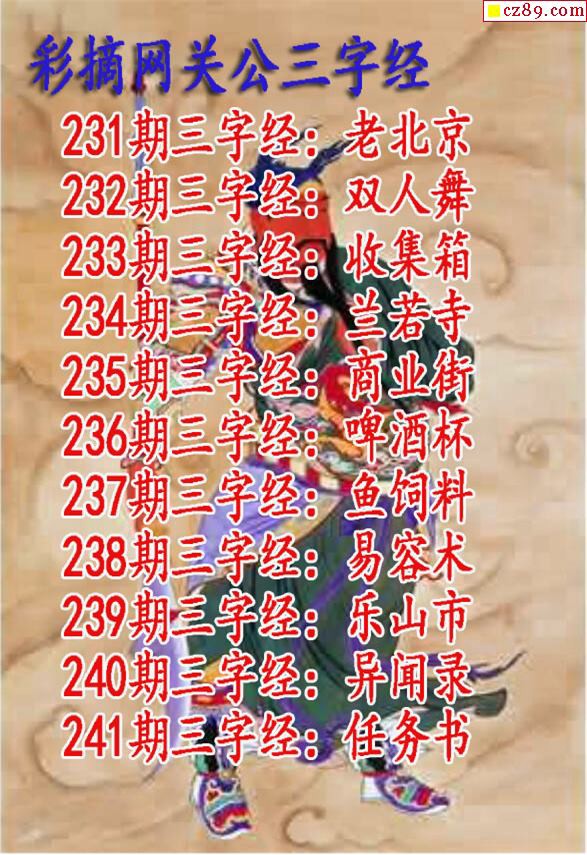 cz89.com
彩摘网关公三字经
231期三字经：老北京
232期三字经：双人舞
233期三字经：收集箱
234期三字经：兰若寺
235期三字经：商业街
236期三字经：啤酒杯
237期三字经：鱼饲料
238期三字经：易容木
239期三字经：乐山市
240期三字经：异闻录
241期三字经：任务书